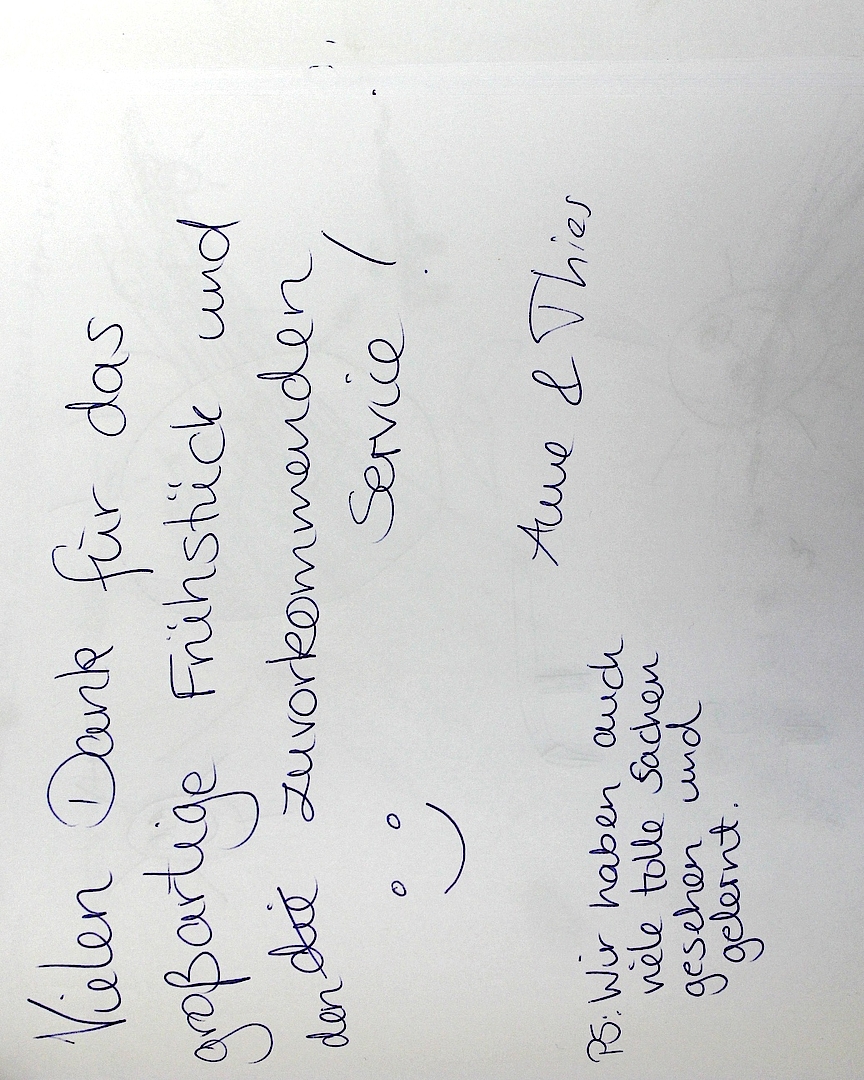 Vielen Dank für das
großartige Frühstück und
den die zuvorkommenden
Service!
Anne & Thies
PS: Wir haben auch
viele tolle Sachen
gesehen und
gelernt.